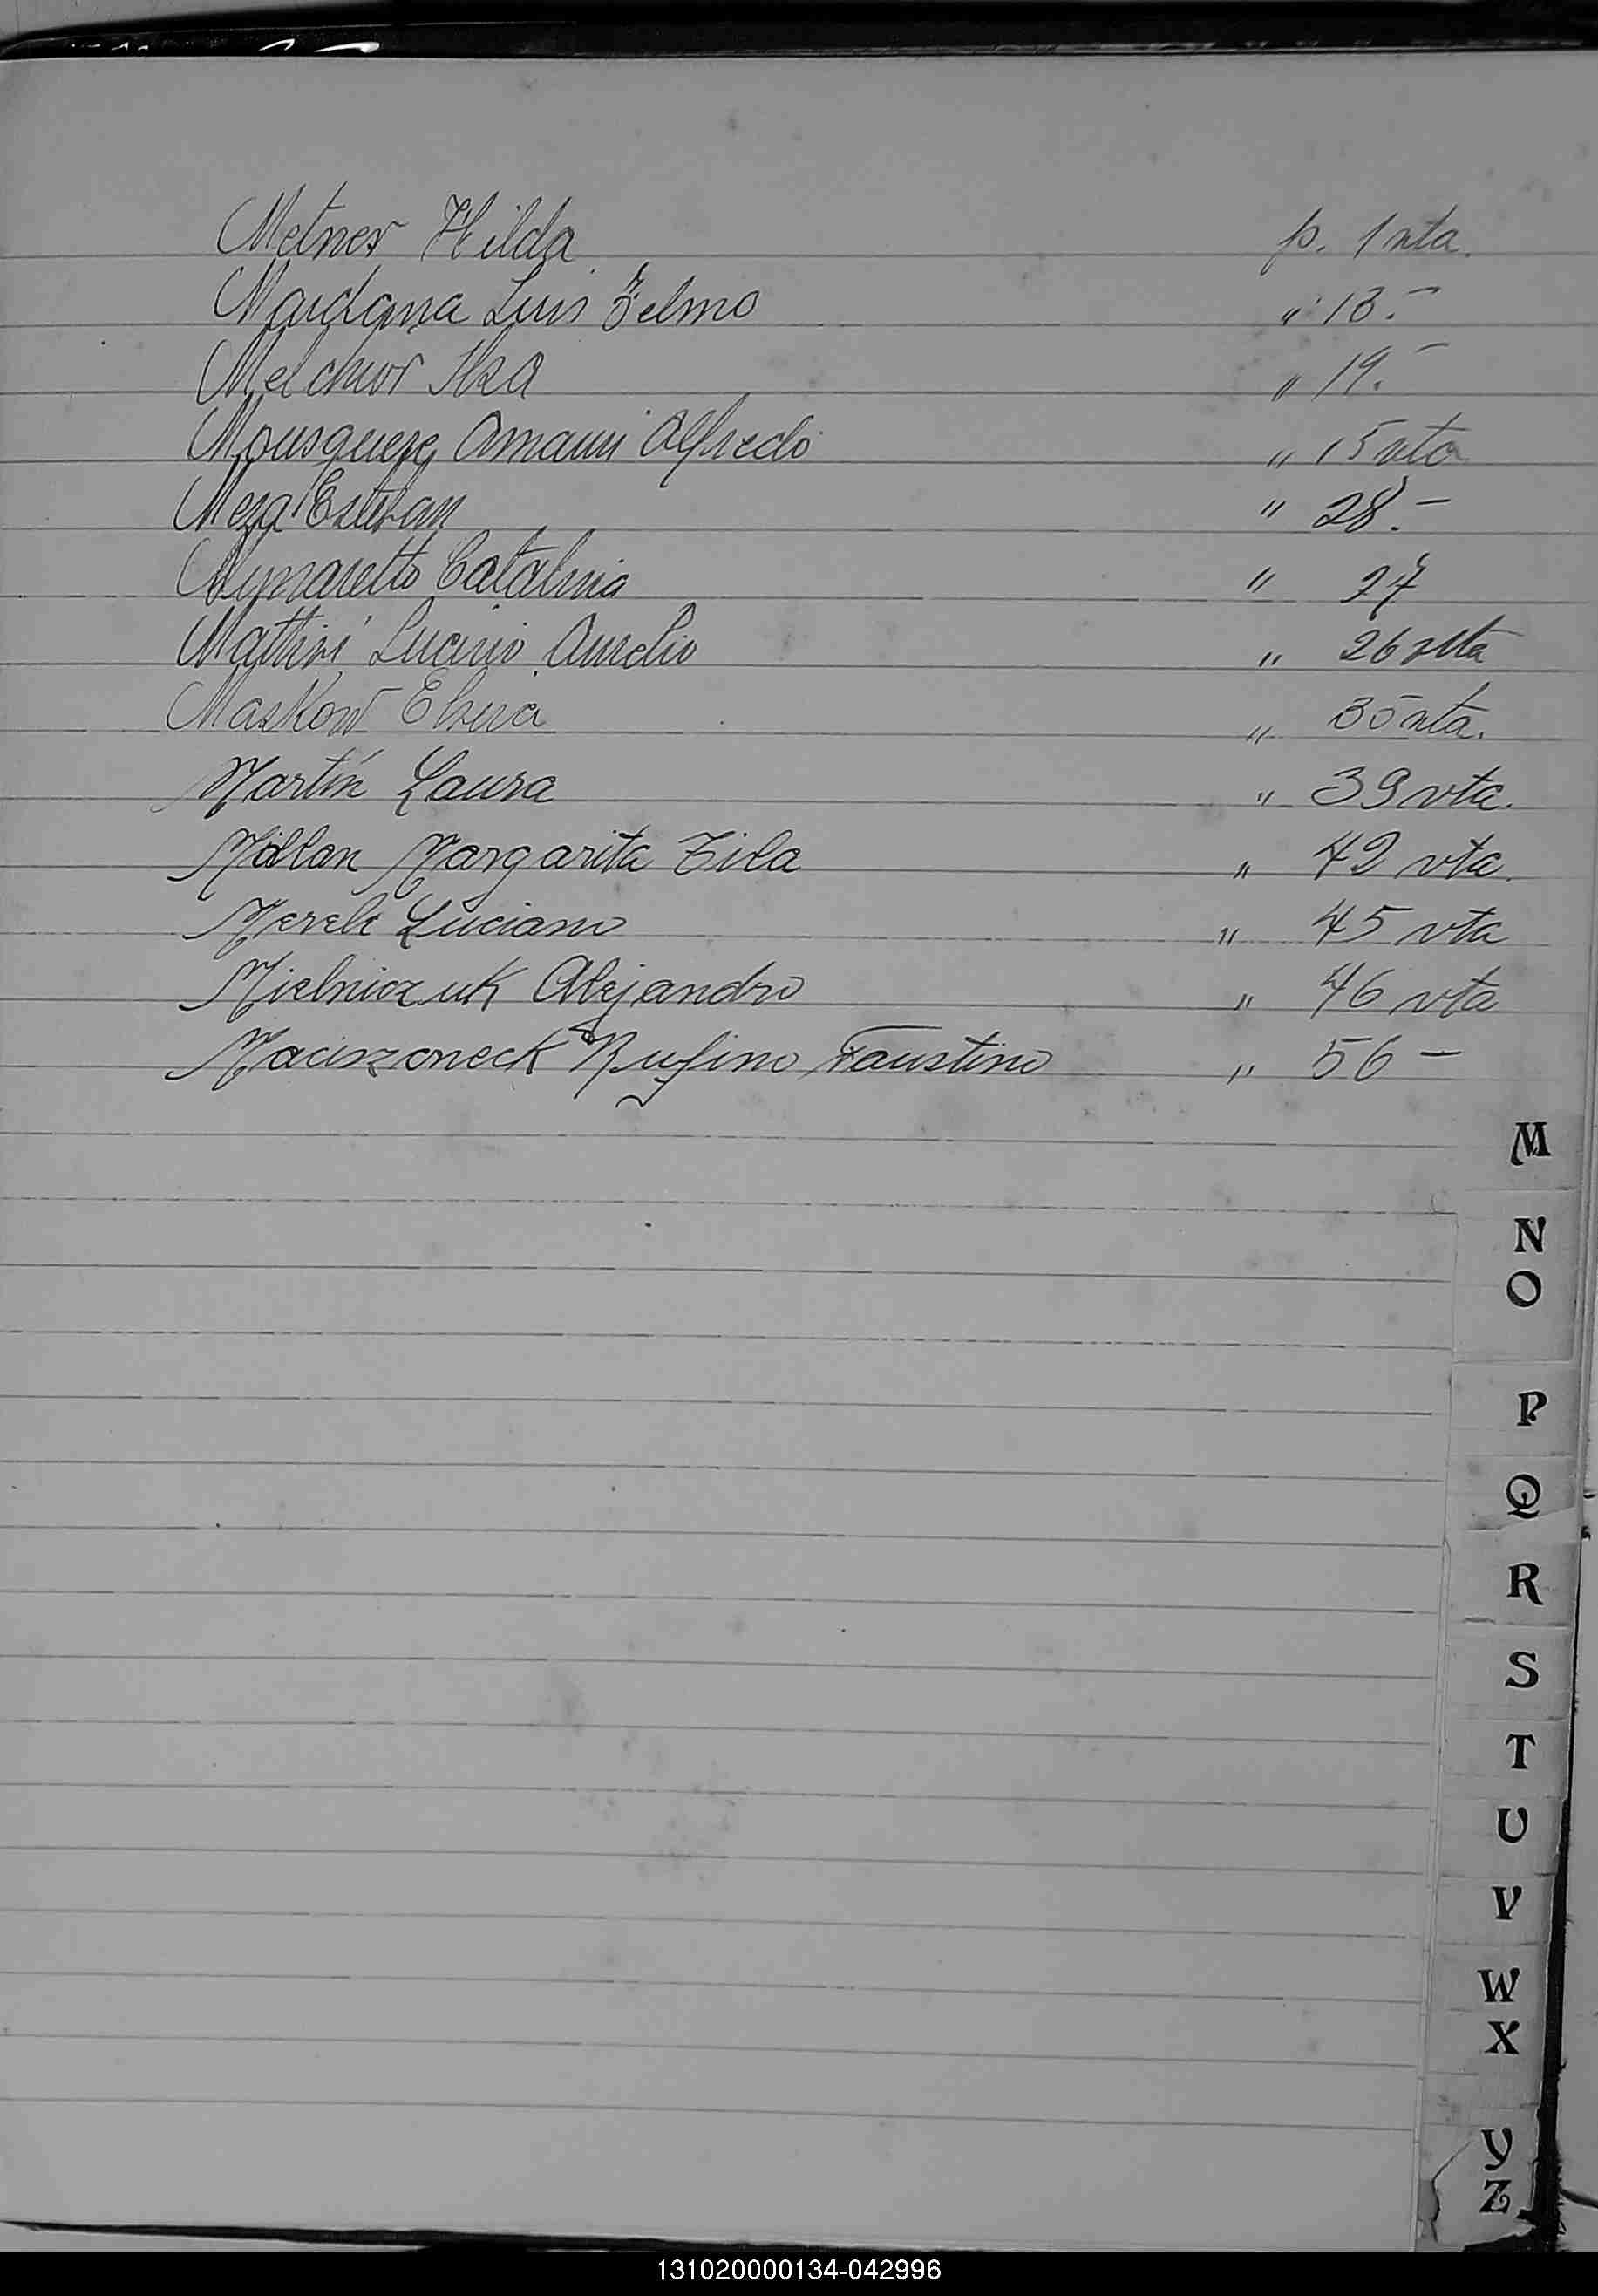 Metner Hilda p. 1 vta.
Maidana Luis Telmo " 13.-
Melchior Ilka " 19.-
Mousquere Amauri Alfredo " 15 vta
Meza Esteban " 28.-
Catalina " 27
Mattivi Lucinio Aurelio " 26 vta
Maskow Elvira " 35 vta.
Martín Laura " 39 vta.
Millan Margarita Zila " 42 vta.
Merele Luciano " 45 vta
Mielniczuk Alejandro " 46 vta
Maciszoneck Rufino Faustino " 56 -
M
N
O
P
Q
R
S
T
U
V
W
X
Y
Z
131020000134-042996